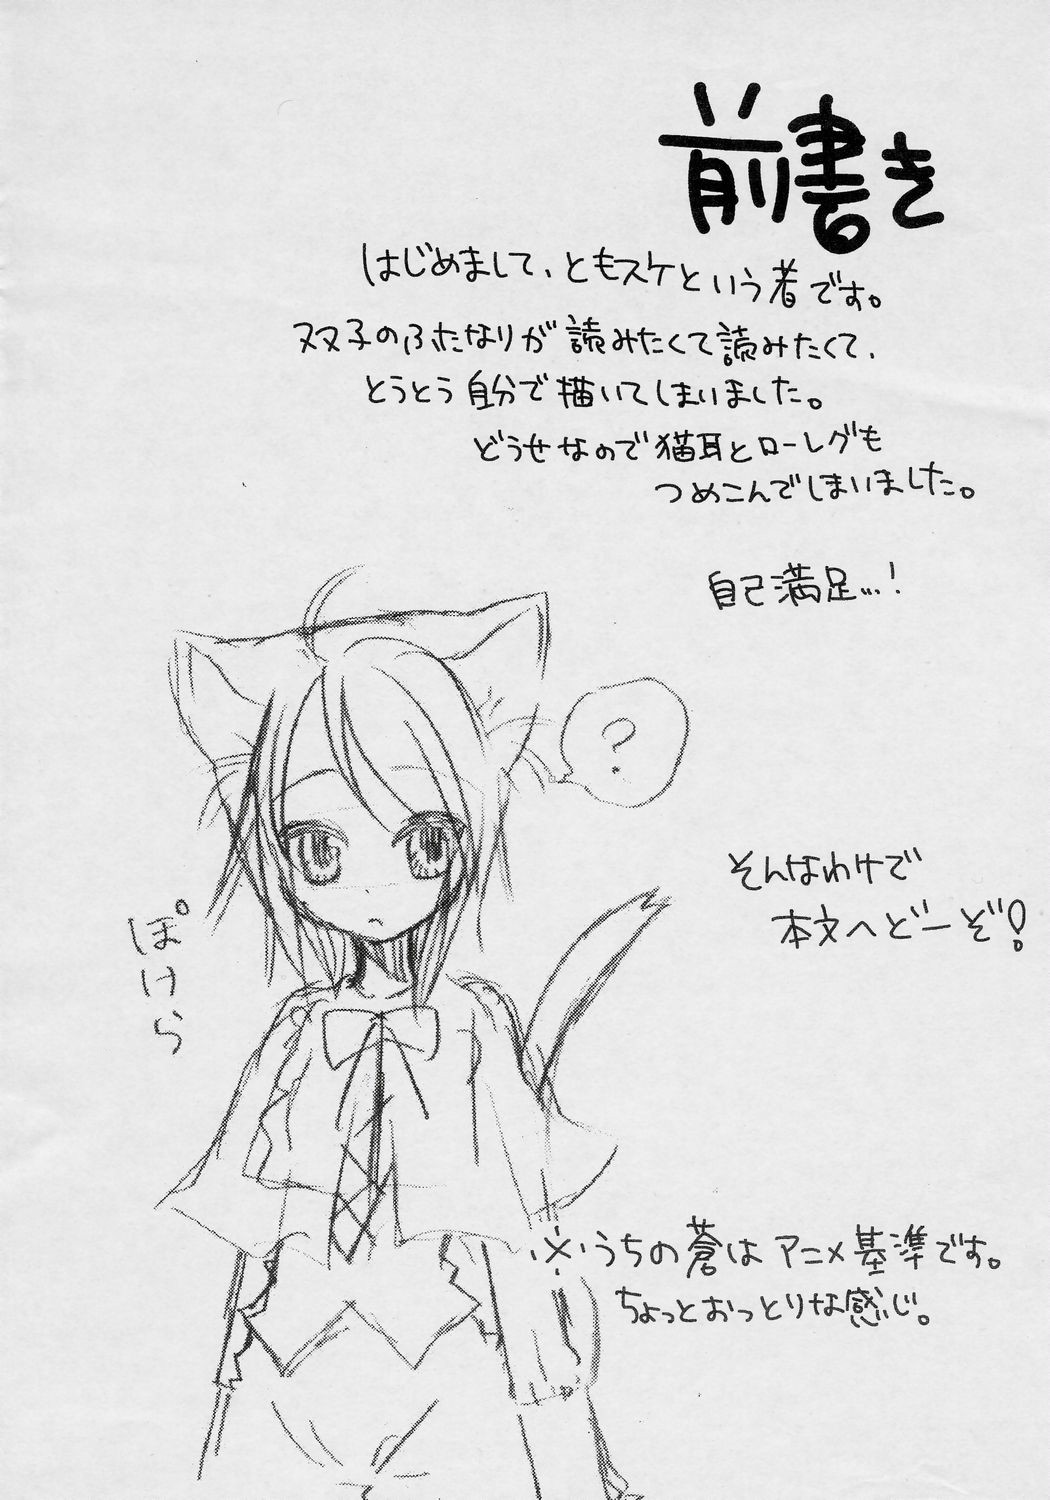 前書き
はじめまして、ともスケという者です。
双子のふたなりが読みたくて読みたくて、
とうとう自分で描いてしまいました。
どうせなので猫耳とローレグも
つめこんでしまいました。
自己満足…!
?
そんなわけで
本文へどーぞ!
ぽけら
※うちの蒼はアニメ基準です。
ちょっとおっとりな感じ。